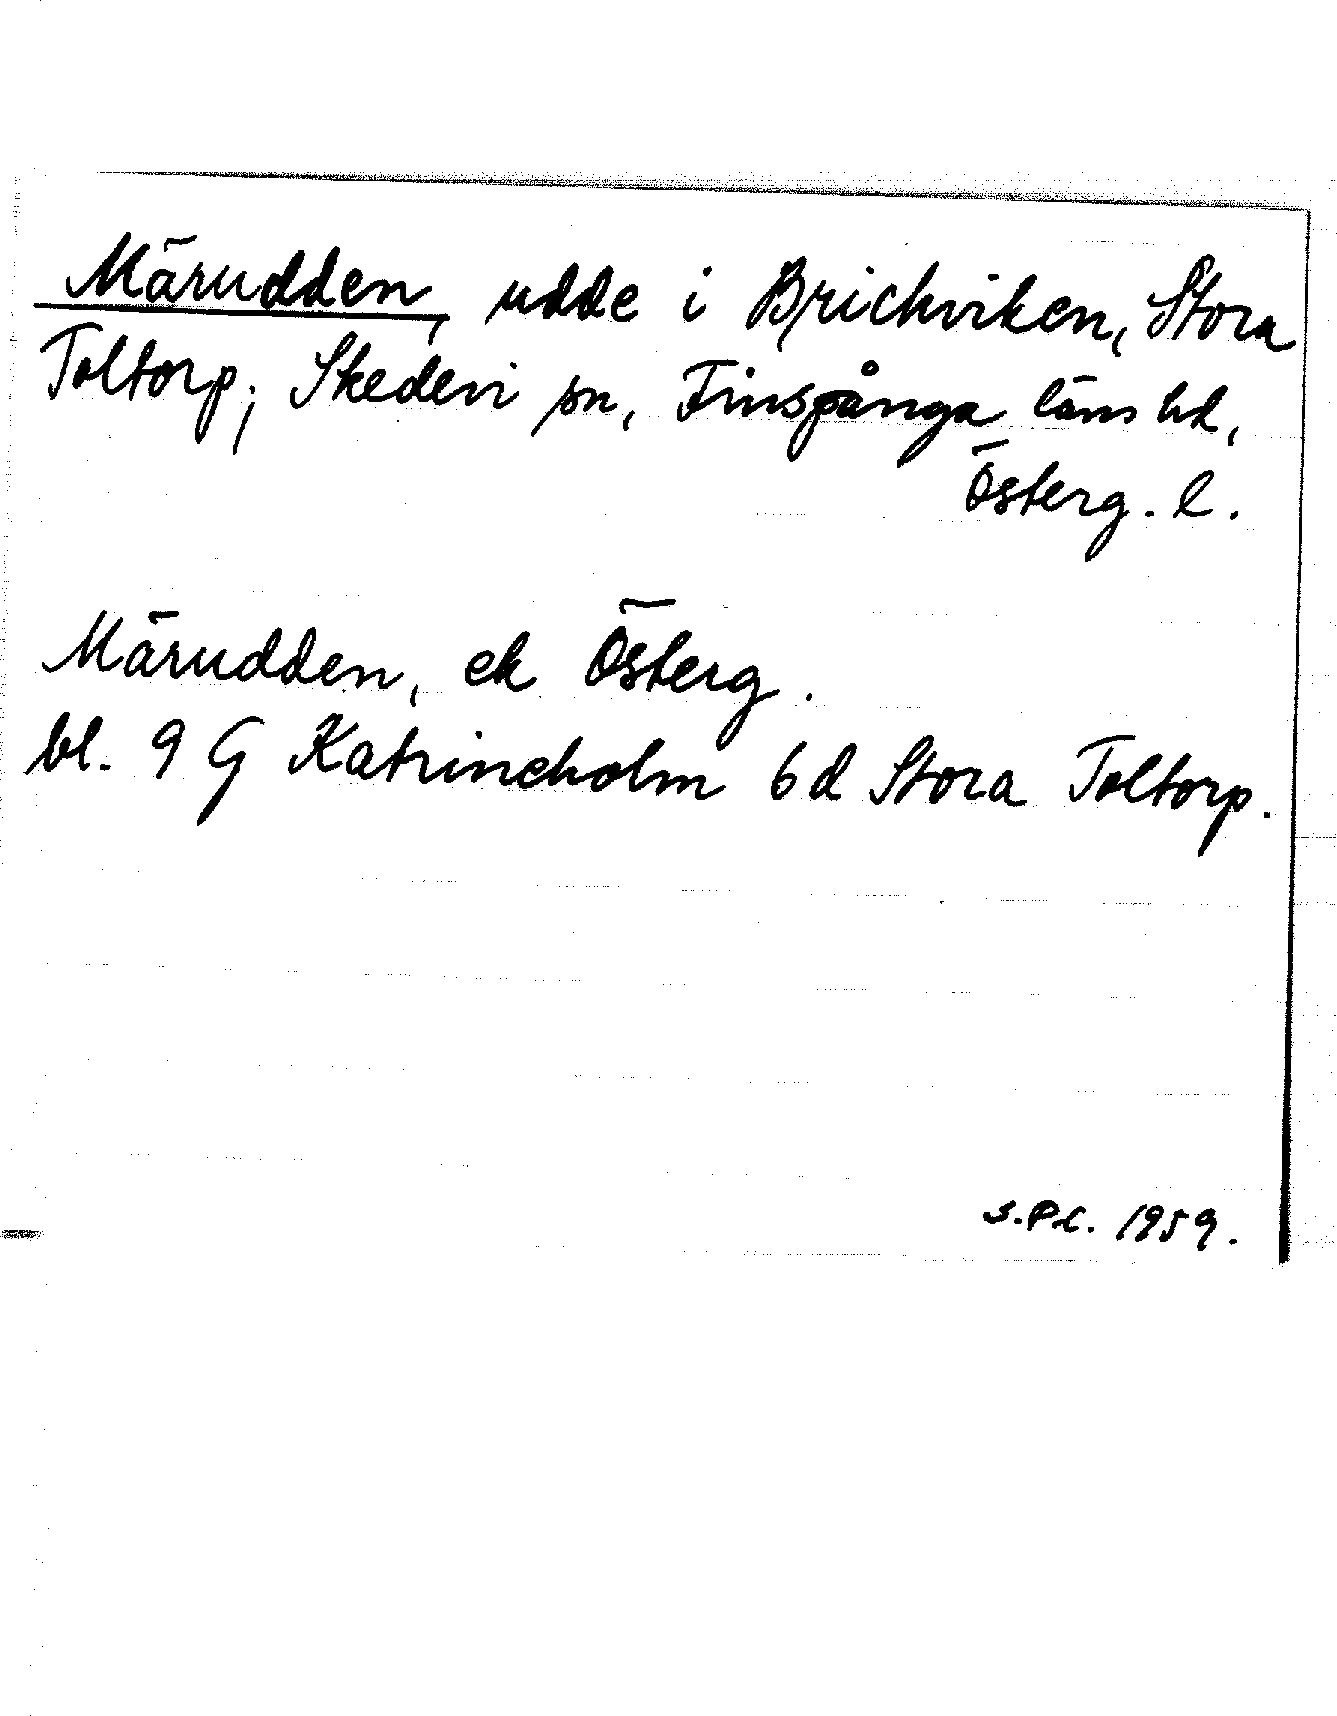 Märudden, udde i Brickviken, Stora
Toltorp; Skedevi sn, Finspånga läns hd,
Österg. l.
Märudden, ek Österg.
bl. 9 G Katrineholm 6d Stora Toltorp.
S.P.C. 1959.